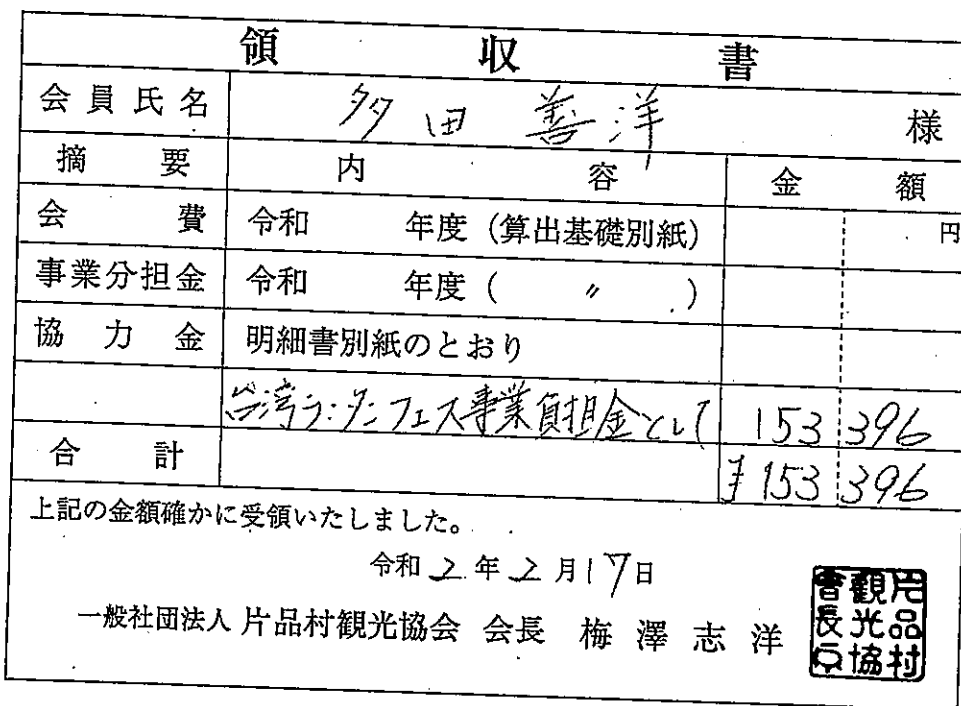 領収書
会員氏名 多田善洋 様
摘要 内容 金額
会費 令和 年度 (算出基礎別紙) 円
事業分担金 令和 年度 ( 〃 )
協力金 明細書別紙のとおり
台湾ランタンフェス事業負担金として 153 396
合計 ¥153 396
上記の金額確かに受領いたしました。
令和2年2月17日
一般社団法人 片品村観光協会 会長 梅澤志洋
片品村
観光協
會長京